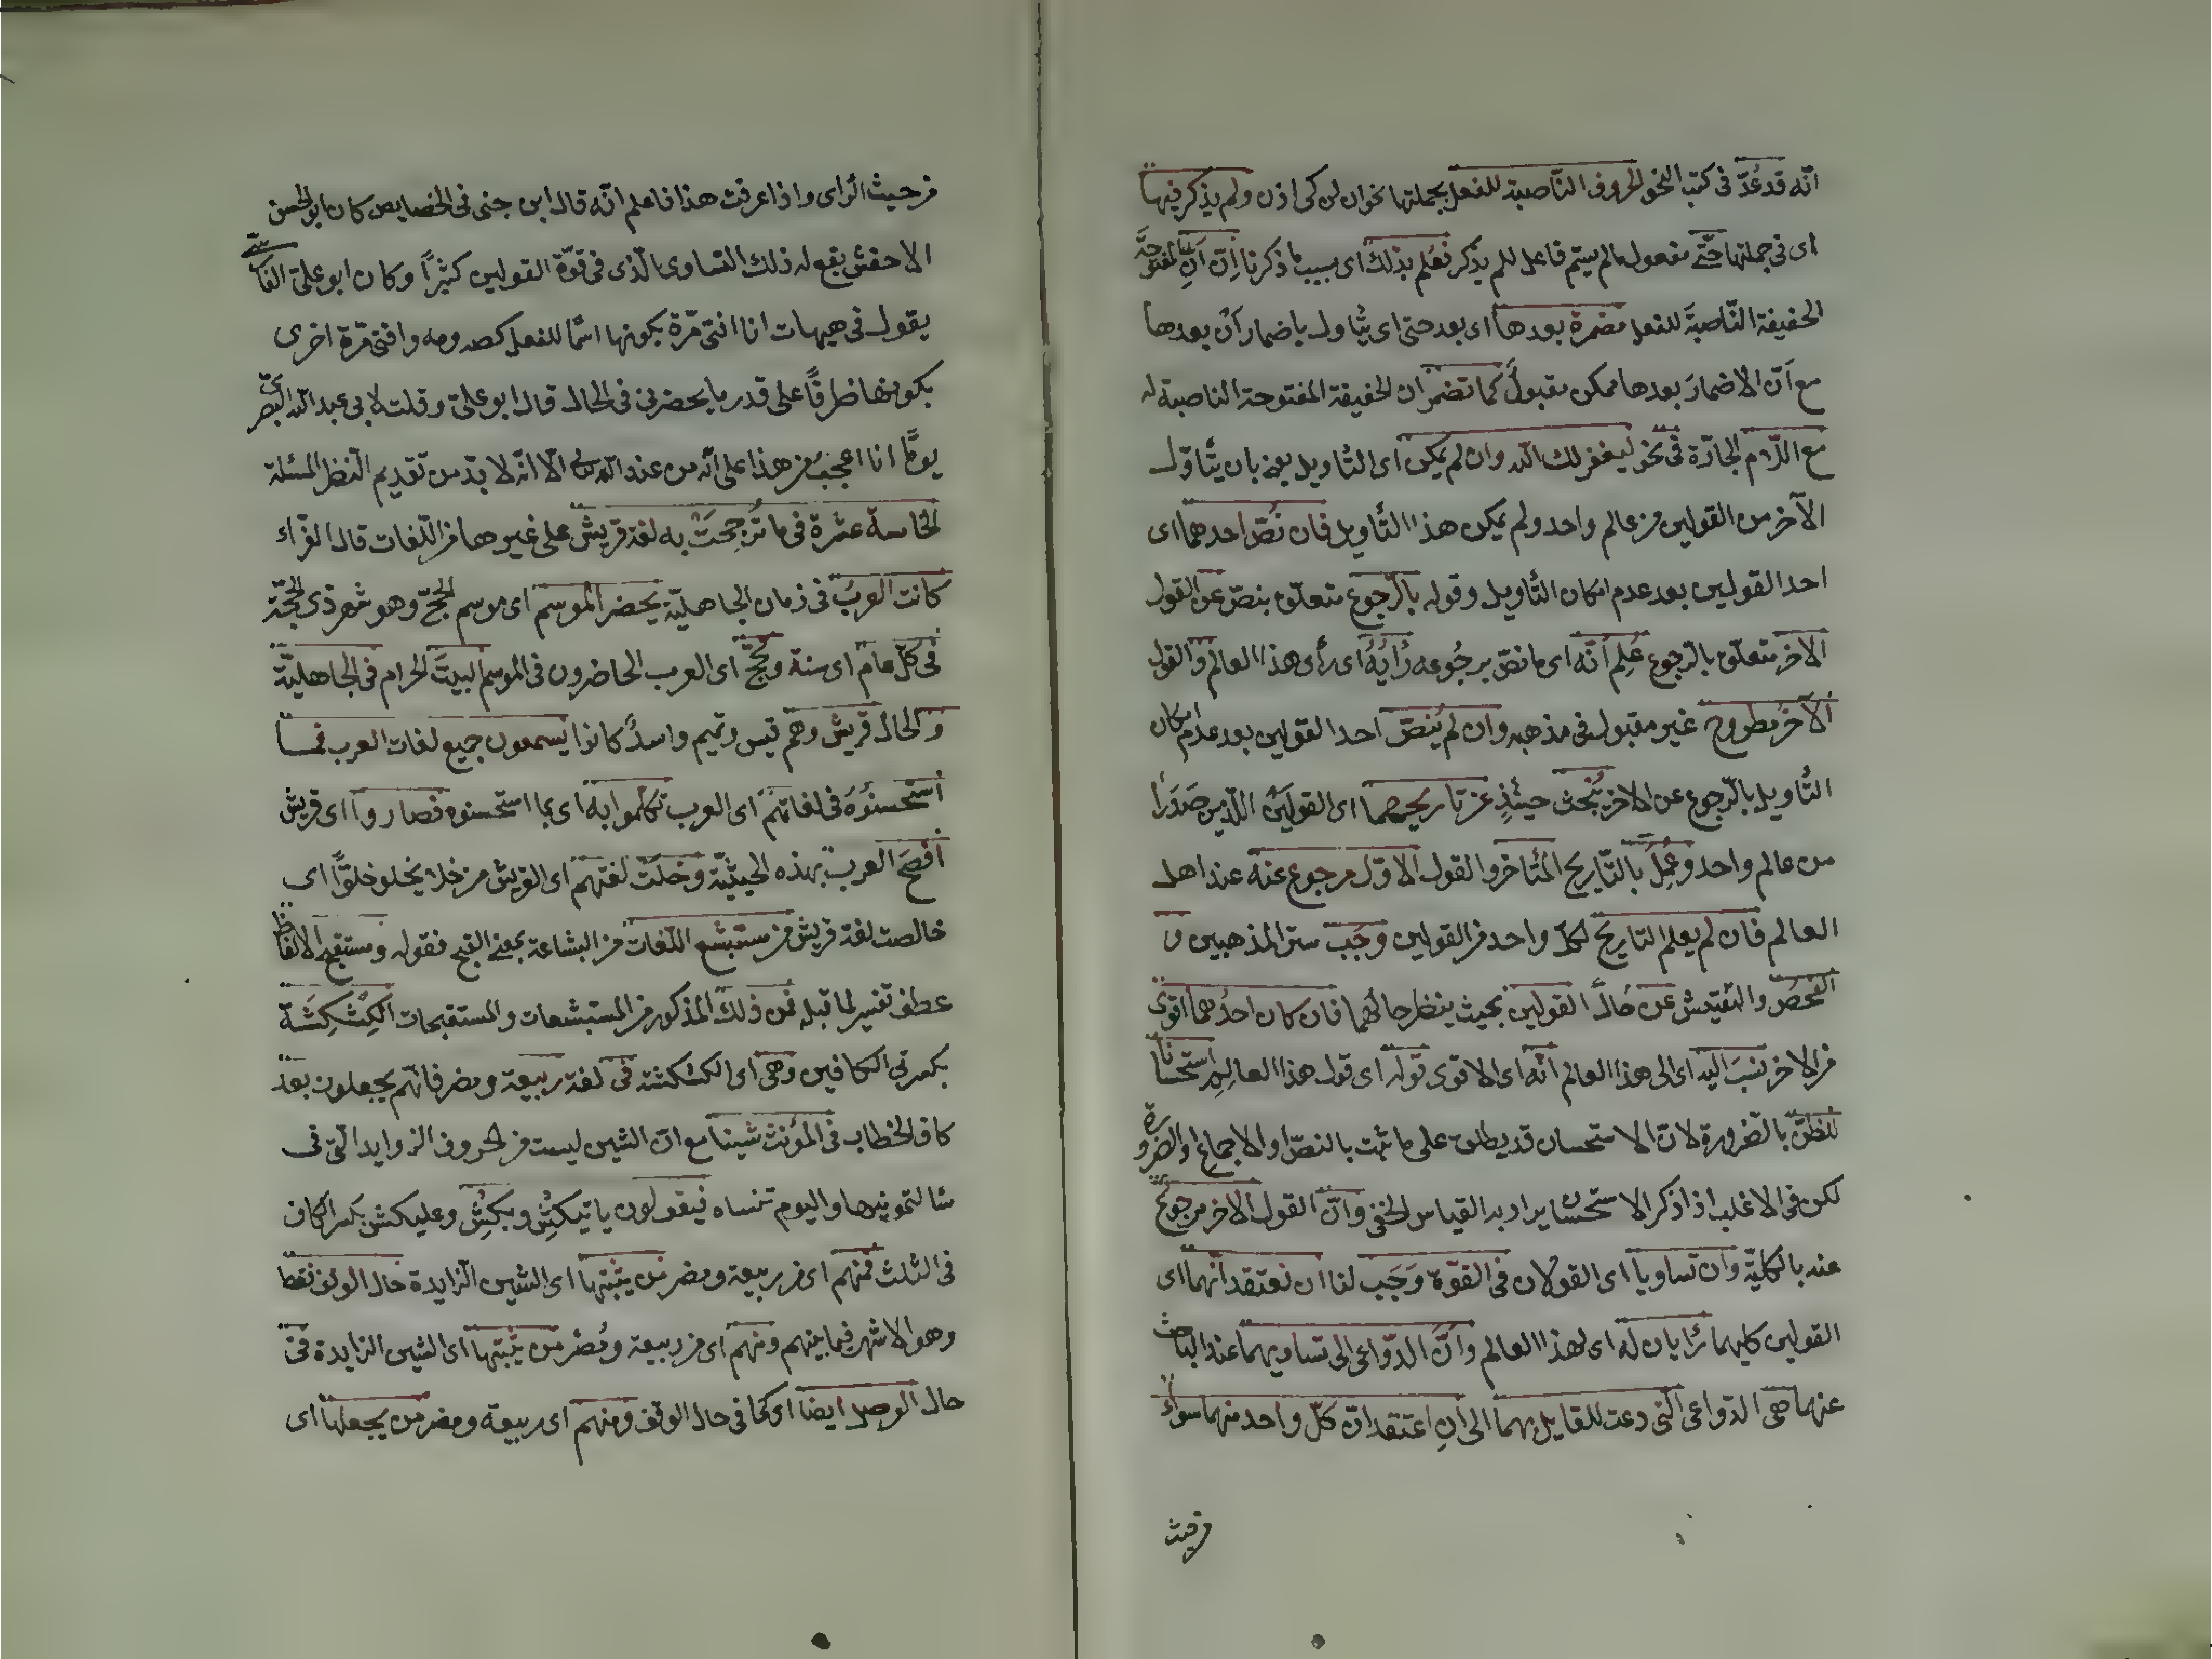 انّه قد عُدّ فى كتب النحو الحروف النّاصبة للفعل بجملتها نحو ان لن كى اذن ولم يذكر فيها
اى فى جملتها حتّى مفعول مالم يسّم فاعله للم يذكر فعُلم بذلك اى بسبب ما ذكرنا اِنّ اَنِ المفتوحة
الخفيفة النّاصبةَ للفعل مضمرة بعدها اى بعد حتى اى يتاول باضمار اَنْ بعدها
مع اَنّ الاضمارَ بعدها ممكن مقبولٌ كما تضمر ان الخفيفة المفتوحة الناصبة له
مع اللّام الجارّة فى نحو ليغفر لك اللّه وان لم يمكن اى التاويل يعنى بان يتاوّل
الآخر من القولين من عالم واحد ولم يمكن هذا التاويل فان نُصّ احدهما اى
احد القولين بعد عدم امكان التاويل وقوله بالرّجوع متعلّق بنصّ عن القول
الاخر متعلّق بالرّجوع عُلِم اَنّه اى ما نصّ برجُوعه رُايُهُ اى رأى هذا العالم والقول
الآخرُ مطروح غير مقبول فى مذهبه وان لم يُنصّ احد القولين بعد عدم امكان
التاويل بالرّجوع عن الاخر يُبحث حينئذٍ عن تاريخهما اى القولَين اللّذين صَدَرا
من عالم واحد وعُمِلَ بالتّاريخ المتاخر والقول الاوّل مرجوع عنه عند اهل
العالم فان لم يعلم التاريخ لكلّ واحد من القولين وجَب ستر المذهبين و
الفحصُ والتفتيش عن حَال القولين بحيث ينظر حالُهما فان كان احدُهما اقوى
من الاخر نسبَ اليه اى الى هذا العالم انّه اى الاقوى قوله اى قول هذا العالِم استحسانا
للظنّ بالضّرورة لانّ الاستحسان قد يطلق على ما ثبت بالنصّ او الاجماع او الضرورة
لكن فى الاغلب اذا ذكر الاستحسان يراد به القياس الخفى وانّ القول الاخر مرجوعٌ
عنه بالكليّة وان تساويا اى القولان فى القوّة وَجَب لنا ان نعتقد انهما اى
القولين كليهما رَايان لَه اى لهذا العالم وانّ الدّواعى الى تساويهما عند الباحث
عنهما هى الدّواعى الّتى دعت للقايل بهما الى اَنِ اعتقد انّ كلّ واحد منهما سواءٌ
من حيث
من حيث الرّاى واذا عرفت هذا فاعلم انّه قال ابن جنى فى الخصايص كان ابو الحسن
الاخفش يقع له ذلك التساوى الّذى فى قوّة القولين كثيرًا وكان ابو علىّ الفارسىّ
يقول فى هيهات انا افتى مّرة بكونها اسمًا للفعل كصه ومه وافتى مّرة اخرى
بكونها ظرفًا على قدر ما يحضرنى فى الحال قال ابو علىّ وقلت لابى عبد اللّه البصرى
يومًا انا اعجبُ من هذا على انّه من عند اللّه الّا انّه لا بدّ من تقديم النظر المسئلة
الخامسة عشرة فى ما تُرجحَت به لغة قريش على غيرها من اللّغات قال الفرّاء
كانت العربُ فى زمان الجاهليّة يحضر الموسم اى موسم الحجّ وهو شهر ذى الحجّة
فى كلّ عام اى سنة وتحجّ اى العرب الحاضرون فى الموسم البيتَ الحرام فى الجاهليّة
والحال قريش وهم قيس وتميم واسدٌ كانوا يسمعون جميع لغات العرب فما
استحسنُوه فى لغاتهم اى العرب تكلّموا به اى بما استحسنوه فصاروا اى قريش
افصَح العرب بهذه الحيثيّة وخلَت لغتهم اى القريش من خلا يخلو خلوًّا اى
خالصت لغة قريش من مستبشع اللّغات من البشاعة بمعنى القبح فقوله ومستقبح الالفاظ
عطف تفسير لما قبله فمن ذلك المذكور من المستبشعات والمستقبحات الكِشْكِشَة
بكسرتى الكافين وهى اى الكشكشة فى لغة ربيعة ومضر فانّهم يجعلون بعد
كاف الخطاب فى المؤنث شينا مع انّ الشين ليست من الحروف الزوايد الّتى فى
سالتمونيها واليوم تنساه فيقولون رايتكِشْ وبكِشْ وعليكش بكسر الكاف
فى الثلث فمنهم اى من ربيعة ومضر من يثبتها اى الشين الزّايدة حال الوقف فقط
وهو الاشهر فيما بينهم ومنهم اى من ربيعة ومُضر من يثبتها اى الشين الزايدة فى
حال الوصل ايضا اى كما فى حال الوقف ومنهم اى ربيعة ومضر من يجعلها اى